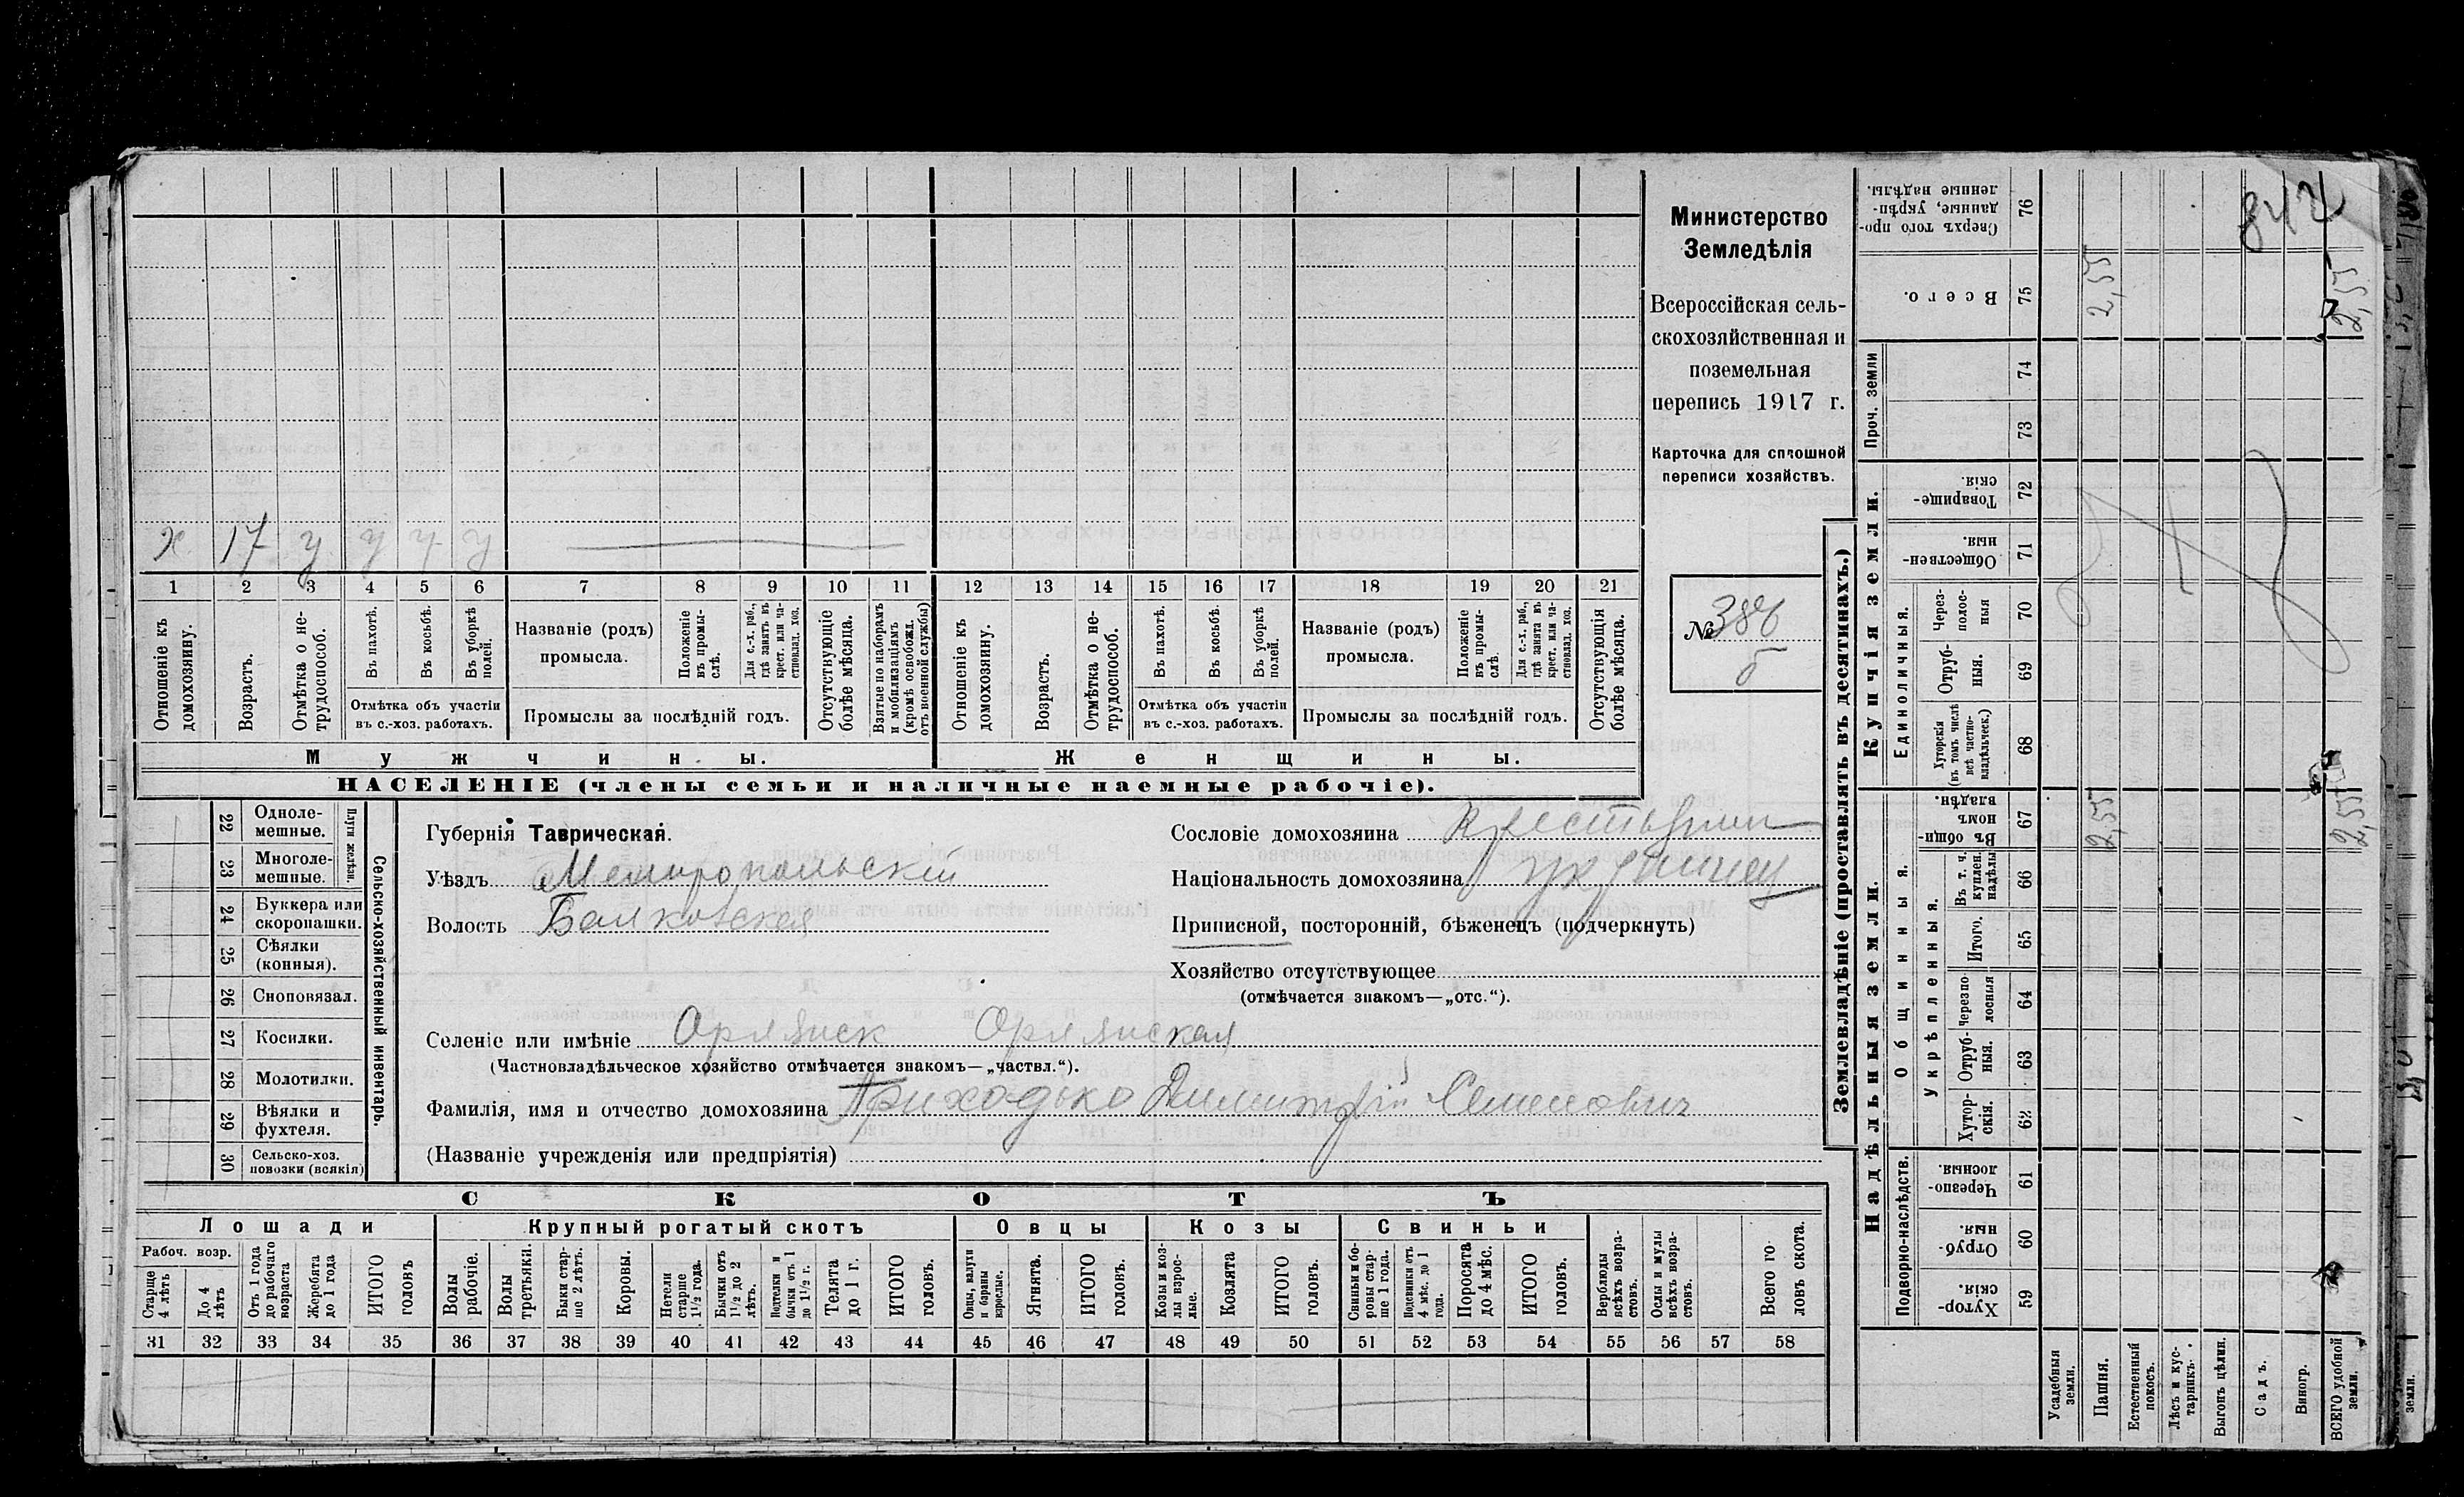 Министерство
Земледѣлія
Всероссійская сель-
скохозяйственная и
поземельная
перепись 1917 г.
Карточка для сплошной
переписи хозяйствъ.
№ 386
б
х 17 у у у у
1 2 3 4 5 6 7 8 9 10 11 12 13 14 15 16 17 18 19 20 21
Отношеніе къ домохозяину.
Возрастъ.
Отмѣтка о не-трудоспособ.
Въ пахотѣ.
Въ косьбѣ.
Въ уборкѣ полей.
Отмѣтка объ участіи
въ с.-хоз. работахъ.
Названіе (родъ)
промысла.
Положеніе въ промы-слѣ.
Для с.-х. раб., гдѣ занятъ въ крест. или ча-стновлад. хоз.
Промыслы за послѣдній годъ.
Отсутствующіе болѣе мѣсяца.
Взятые по наборамъ и мобилизаціямъ (кромѣ освобожд. отъ военной службы)
Отношеніе къ домохозяину.
Возрастъ.
Отмѣтка о не-трудоспособ.
Въ пахотѣ.
Въ косьбѣ.
Въ уборкѣ полей.
Отмѣтка объ участіи
въ с.-хоз. работахъ.
Названіе (родъ)
промысла.
Положеніе въ промы-слѣ.
Для с.-х. раб., гдѣ занята въ крест. или ча-стновлад. хоз.
Промыслы за послѣдній годъ.
Отсутствующія болѣе мѣсяца.
Мужчины.
Женщины.
НАСЕЛЕНІЕ (члены семьи и наличные наемные рабочіе).
22 Одноле-мешные.
23 Многоле-мешные.
Плуги желѣзн.
24 Буккера или скоропашки.
25 Сѣялки (конныя).
26 Сноповязал.
27 Косилки.
28 Молотилки.
29 Вѣялки и фухтеля.
30 Сельско-хоз. повозки (всякія)
Сельско-хозяйственный инвентарь.
Губернія Таврическая.
Уѣздъ Мелитопольскій
Волость Балковская
Сословіе домохозяина крестьянин
Національность домохозяина украинец
Приписной, посторонній, бѣженецъ (подчеркнуть)
Хозяйство отсутствующее
(отмѣчается знакомъ—„отс.“).
Селеніе или имѣніе Орлянск Орлянская
(Частновладѣльческое хозяйство отмѣчается знакомъ—„частвл.“).
Фамилія, имя и отчество домохозяина Приходько Димитрій Семенович
(Названіе учрежденія или предпріятія)
СКОТЪ
Лошади
Крупный рогатый скотъ
Овцы
Козы
Свиньи
Рабоч. возр.
Старше 4 лѣтъ
До 4 лѣтъ
Отъ 1 года до рабочаго возраста
Жеребята до 1 года
ИТОГО головъ
Волы рабочіе.
Волы третьяки.
Быки стар-ше 2 лѣтъ.
Коровы.
Нетели старше 1½ года.
Бычки отъ 1½ до 2 лѣтъ.
Подтелки и бычки отъ 1 до 1½ г.
Телята до 1 г.
ИТОГО головъ.
Овцы, валухи и бараны взрослые.
Ягнята.
ИТОГО головъ.
Козы и коз-лы взрос-лые.
Козлята
ИТОГО головъ.
Свиньи и бо-ровы стар-ше 1 года.
Подсвинки отъ 4 мѣс. до 1 года.
Поросята до 4 мѣс.
ИТОГО головъ.
Верблюды всѣхъ возра-стовъ.
Ослы и мулы всѣхъ возра-стовъ.
Всего го-ловъ скота.
31 32 33 34 35 36 37 38 39 40 41 42 43 44 45 46 47 48 49 50 51 52 53 54 55 56 57 58
Землевладѣніе (проставлять въ десятинахъ.)
Надѣльныя земли.
Купчія земли.
Проч. земли
Подворно-наслѣдств.
Общинныя.
Укрѣпленныя.
Единоличныя.
Хутор-скія. 59
Отруб-ныя. 60
Черезпо-лосныя. 61
Хутор-скія. 62
Отруб-ныя. 63
Черезпо-лосныя 64
Итого. 65
Въ т. ч. куплен. надѣлы 66
Въ общин-номъ владѣн. 67
Хуторскія (въ томъ числѣ всѣ частно-владѣльческ.) 68
Отруб-ныя. 69
Через-полос-ныя 70
Обществен-ныя. 71
Товарище-скія. 72
73
74
Всего. 75
Сверхъ того про-данные, укрѣп-ленные надѣлы. 76
Усадебныя земли.
Пашня. 2,55 2,55
Естественный покосъ.
Лѣсъ и кус-тарникъ.
Выгонъ цѣлин.
Садъ.
Виногр.
ВСЕГО удобной земли. 2,55 2,55
земли.